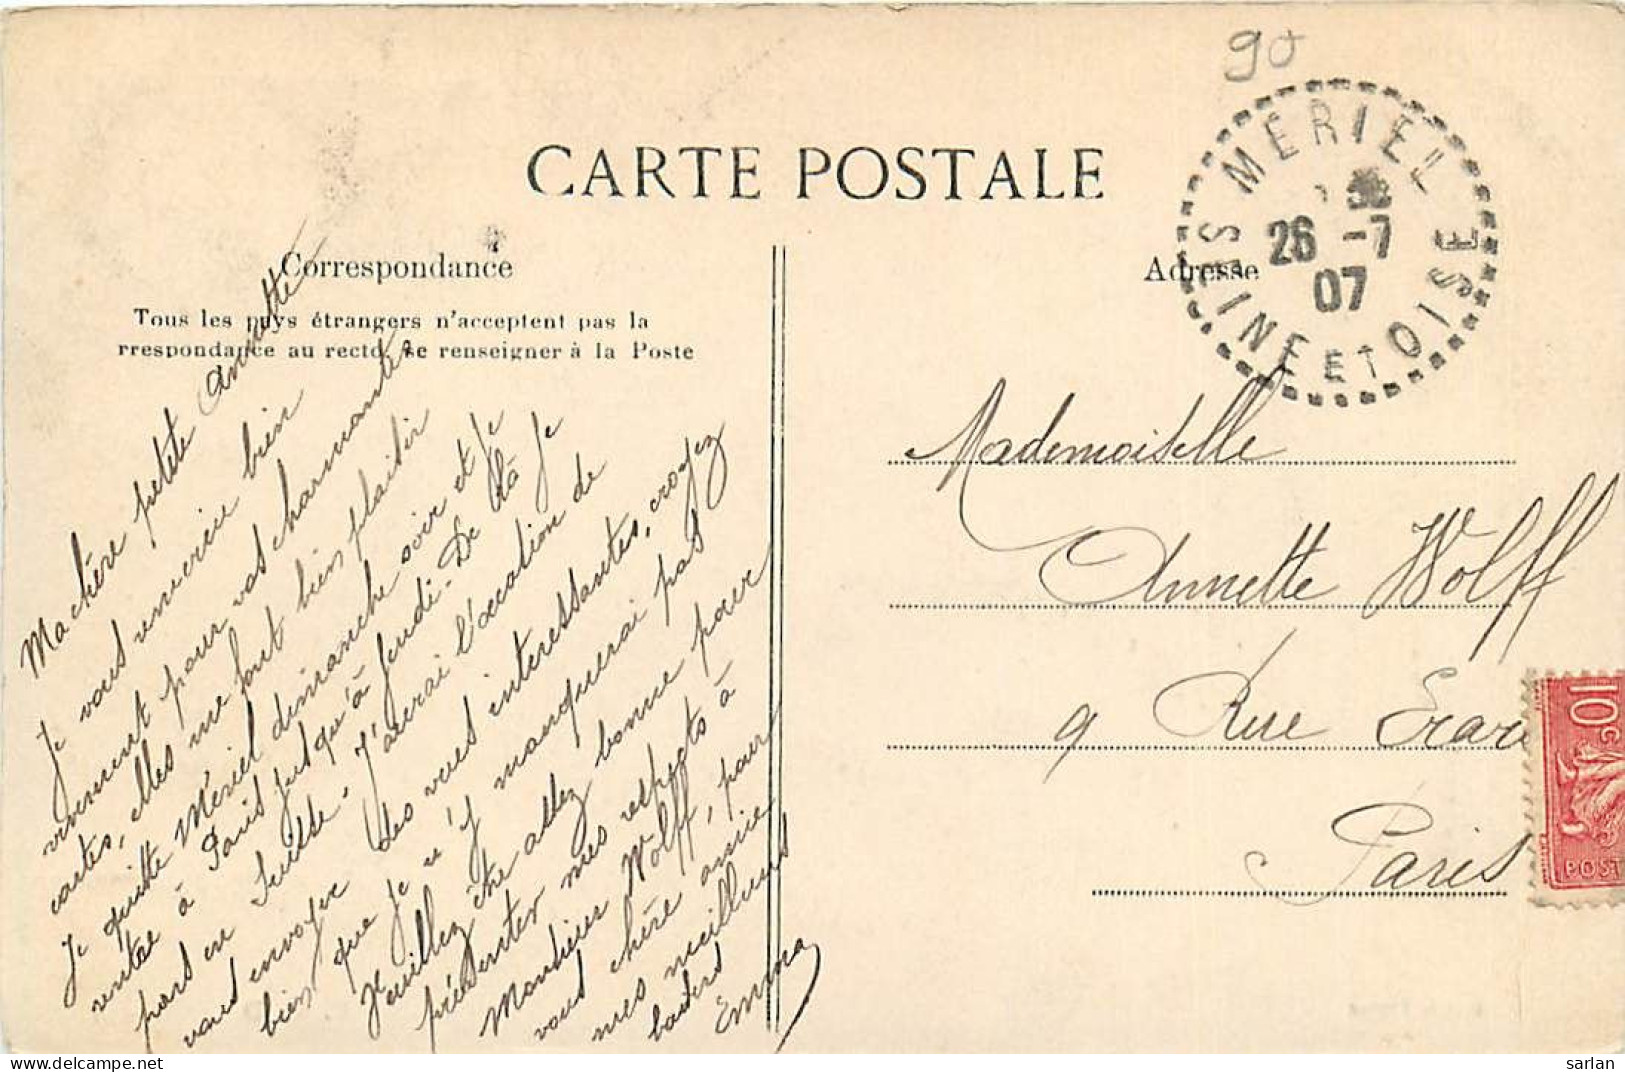 90
CARTE POSTALE
MERIEL
26 -7
07
SEINE ET OISE
Correspondance
Adresse
Tous les pays étrangers n'acceptent pas la
rrespondance au recto, se renseigner à la Poste
Ma chère petite Annette
Je vous remercie bien
vivement pour vos charmantes
cartes, elles me font bien plaisir
Je quitte Mériel dimanche soir et je
rentre à Paris jusqu'à Jeudi. De là je
pars en Suisse. J'aurai l'occation de
vous envoyer des vues interessantes, croyez
bien que je n'y manquerai pas
Veuillez être assez bonne pour
présenter mes respects à
Monsieur Wolff, pour
vous chère amie
mes meilleurs
baisers
Emma
Mademoiselle
Annette Wolff
9 Rue Erard
Paris
10c
POST
sarlan